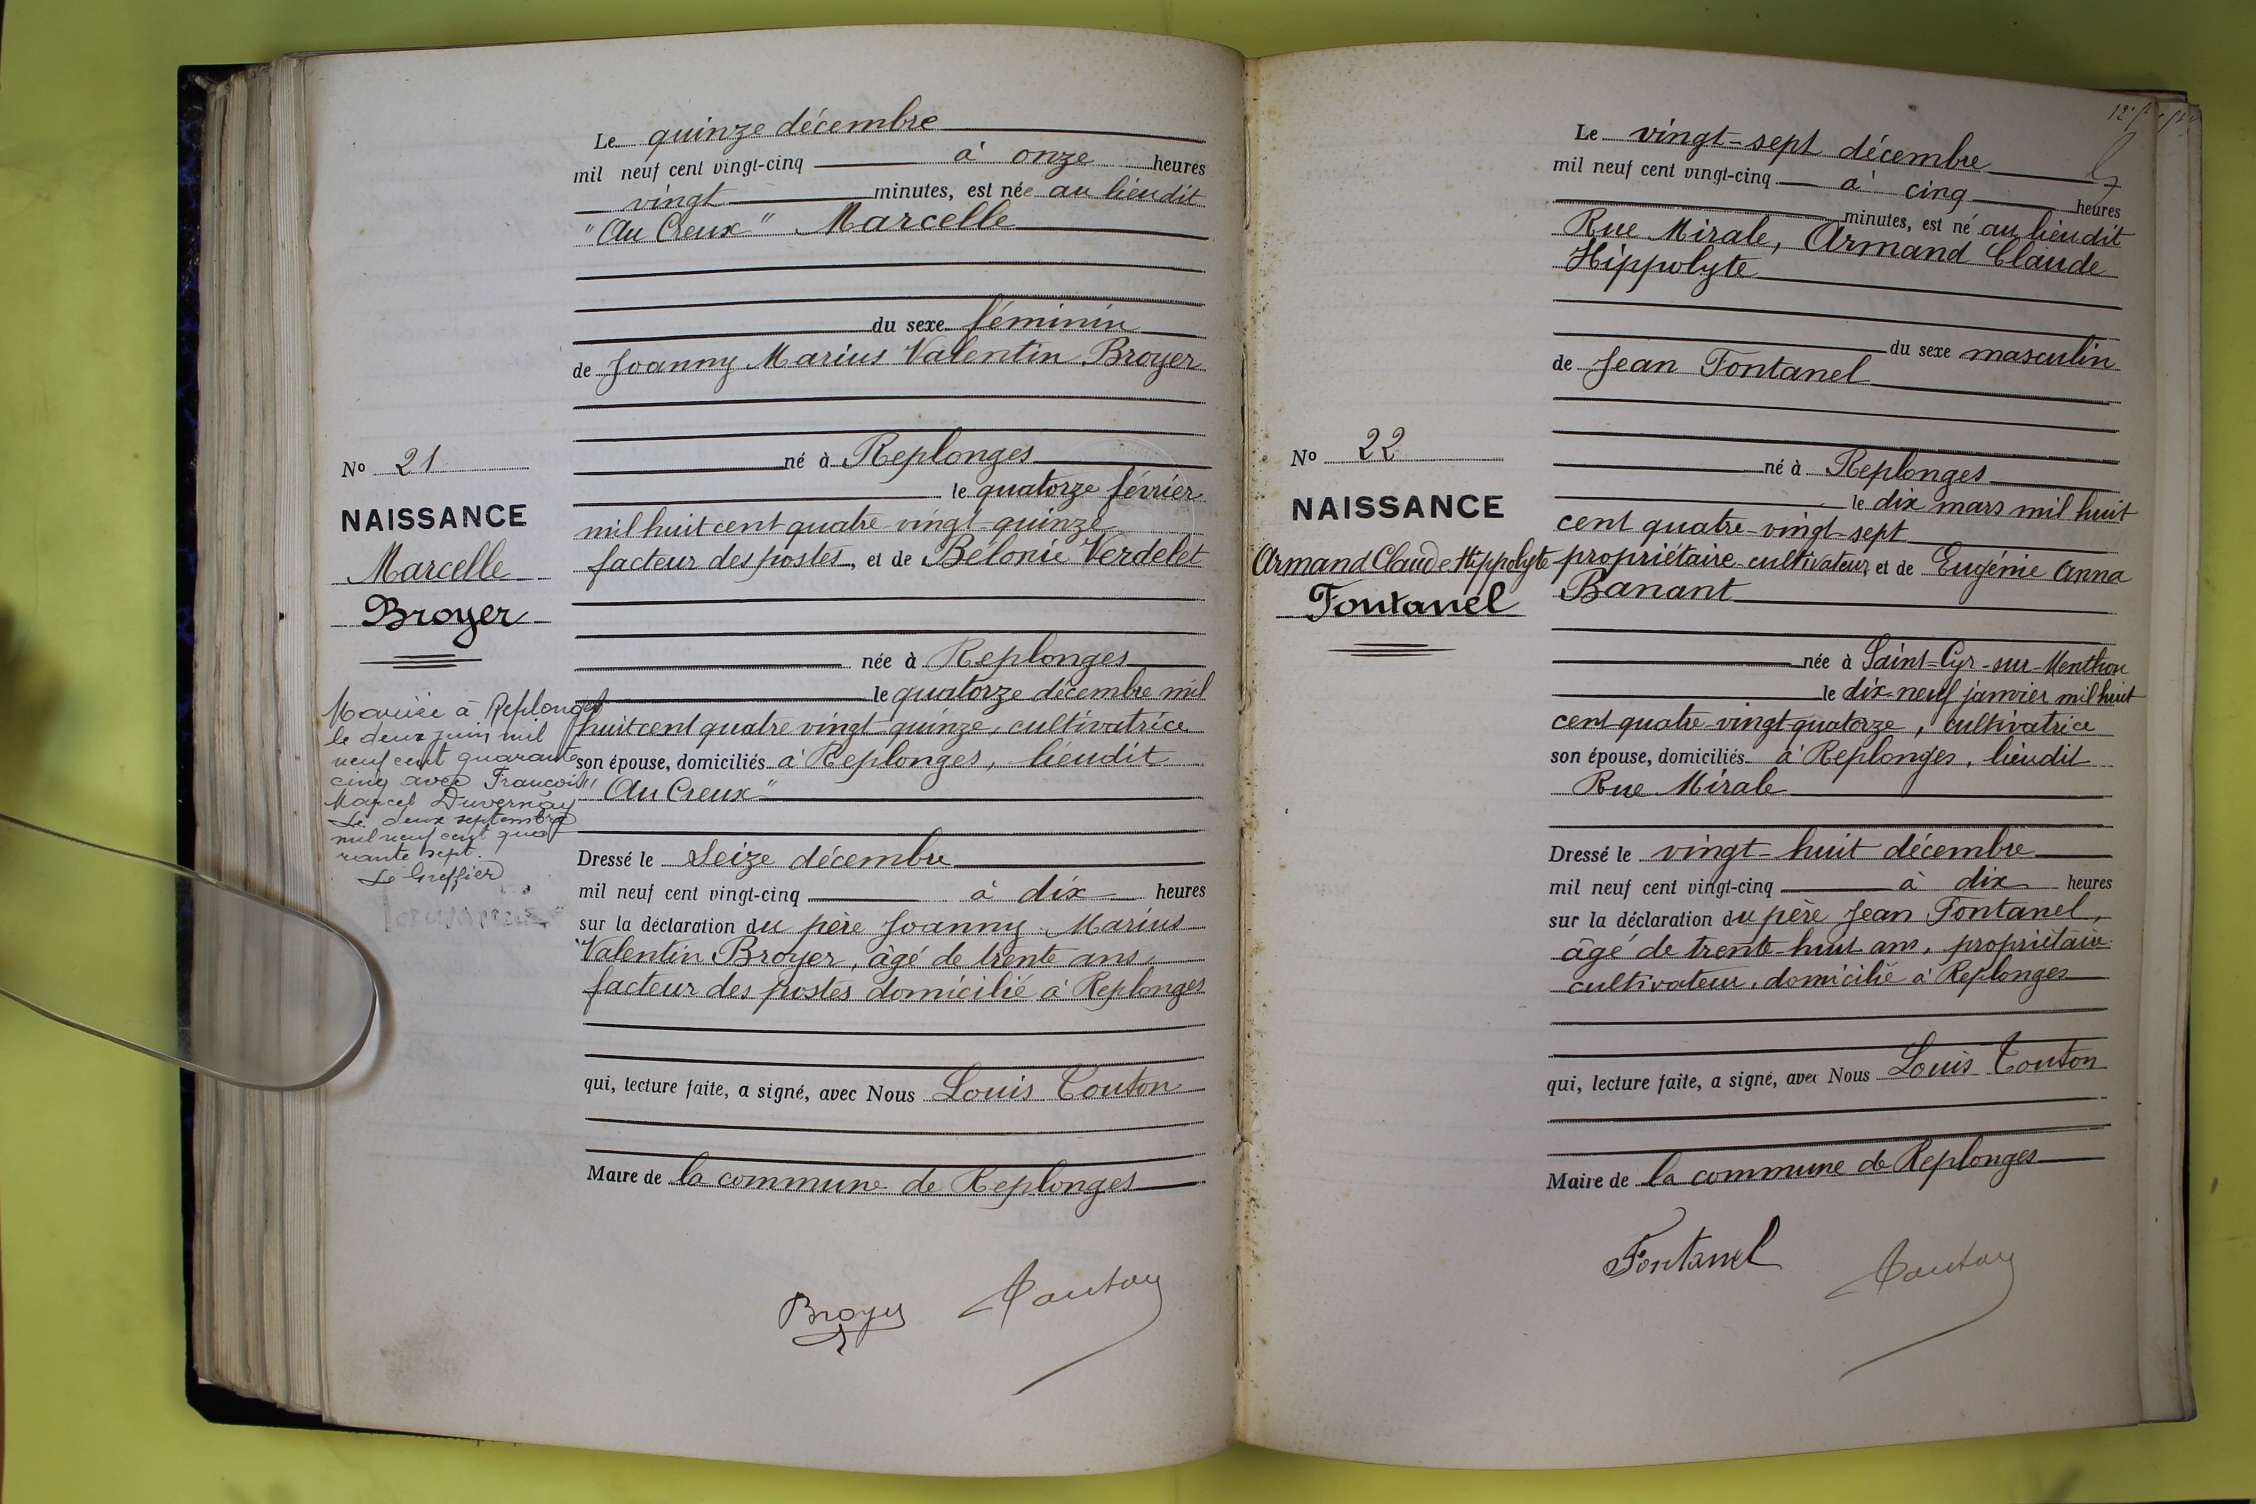 Le quinze décembre
mil neuf cent vingt-cinq à onze heures
vingt minutes, est née au lieudit
"Au Creux" Marcelle
du sexe féminin
de Joanny Marius Valentin Broyer
né à Replonges
le quatorze février
mil huit cent quatre-vingt-quinze
facteur des postes, et de Bélonie Verdelet
née à Replonges
le quatorze décembre mil
huit cent quatre vingt-quinze, cultivatrice
son épouse, domiciliés à Replonges, lieudit
"Au Creux"
Dressé le seize décembre
mil neuf cent vingt-cinq à dix heures
sur la déclaration du père Joanny Marius
Valentin Broyer, âgé de trente ans,
facteur des postes domicilié à Replonges
qui, lecture faite, a signé, avec Nous Louis Touton
Maire de la commune de Replonges
Broyer Touton
No 21
NAISSANCE
Marcelle
Broyer
Mariée à Replonges
le deux juin mil
neuf cent quarante
cinq avec François
Marcel Duvernay
Le deux septembre
mil neuf cent qua
rante sept.
Le Greffier
Le vingt-sept décembre
mil neuf cent vingt-cinq à cinq heures
minutes, est né au lieudit
Rue Mirale, Armand Claude
Hippolyte
du sexe masculin
de Jean Fontanel
né à Replonges
le dix mars mil huit
cent quatre-vingt-sept
propriétaire-cultivateur, et de Eugénie Anna
Banant
née à Saint-Cyr-sur-Menthon
le dix-neuf janvier mil huit
cent quatre-vingt quatorze, cultivatrice
son épouse, domiciliés à Replonges, lieudit
Rue Mirale
Dressé le vingt-huit décembre
mil neuf cent vingt-cinq à dix heures
sur la déclaration du père Jean Fontanel,
âgé de trente-huit ans, propriétaire
cultivateur, domicilié à Replonges
qui, lecture faite, a signé, avec Nous Louis Touton
Maire de la commune de Replonges
Fontanel Touton
No 22
NAISSANCE
Armand Claude Hippolyte
Fontanel